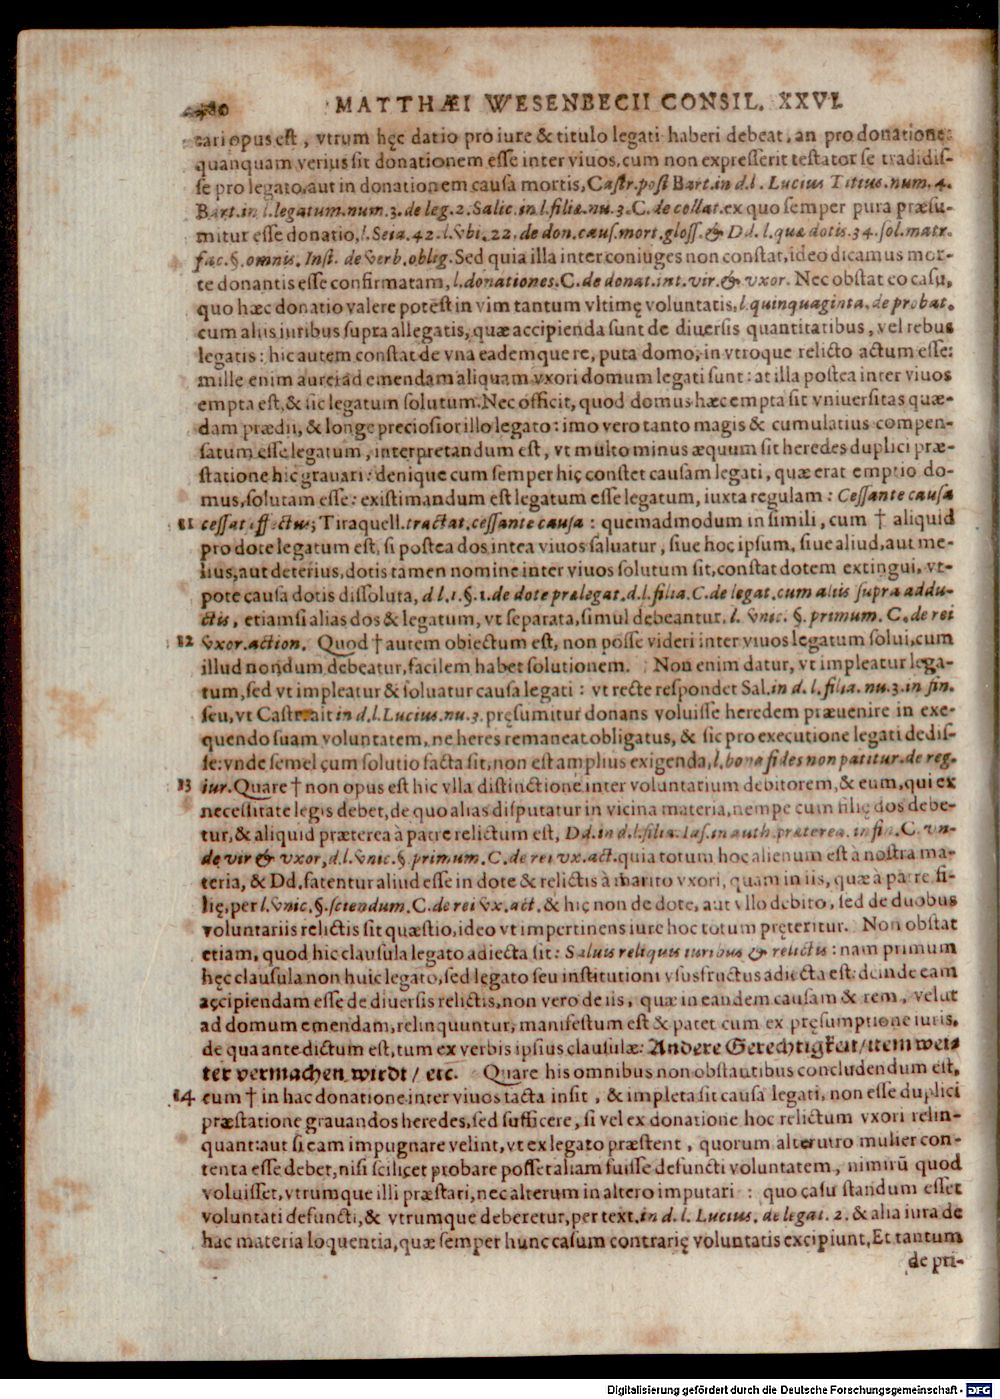 MATTHÆI WESENBECII CONSIL. XXVI.
tari opus est, vtrum hęc datio pro iure & titulo legati haberi debeat, an pro donatione:
quanquam verius sit donationem esse inter viuos, cum non expresserit testator se tradidis-
se pro legato, aut in donationem causa mortis, Castr. post Bart. in d. l. Lucius Titius. num. 4.
Bart. in l. legatum. num. 3. de leg. 2. Salic. in l. filiæ. nu. 3. C. de collat. ex quo semper pura præsu-
mitur esse donatio, l. Seia. 42. l. vbi. 22. de don. caus. mort. gloss. & Dd. l. quæ dotis. 34. sol. matr.
fac. §. omnis. Inst. de verb. oblig. Sed quia illa inter coniuges non constat, ideo dicamus mor-
te donantis esse confirmatam, l. donationes. C. de donat. int. vir. & vxor. Nec obstat eo casu,
quo hæc donatio valere potest in vim tantum vltimę voluntatis, l. quinquaginta. de probat.
cum aliis iuribus supra allegatis, quæ accipienda sunt de diuersis quantitatibus, vel rebus
legatis: hic autem constat de vna eademque re, puta domo, in vtroque relicto actum esse:
mille enim aurei ad emendam aliquam vxori domum legati sunt: at illa postea inter viuos
empta est, & sic legatum solutum. Nec officit, quod domus hæc empta sit vniuersitas quæ-
dam prædii, & longe preciosior illo legato: imo vero tanto magis & cumulatius compen-
satum esse legatum, interpretandum est, vt multo minus æquum sit heredes duplici præ-
statione hic grauari: denique cum semper hic constet causam legati, quæ erat emptio do-
mus, solutam esse: existimandum est legatum esse legatum, iuxta regulam: Cessante causa
11 cessat effectus; Tiraquell. tractat. cessante causa: quemadmodum in simili, cum † aliquid
pro dote legatum est, si postea dos intea viuos saluatur, siue hoc ipsum, siue aliud, aut me-
lius, aut deterius, dotis tamen nomine inter viuos solutum sit, constat dotem extingui, vt-
pote causa dotis dissoluta, d l. 1. §. 1. de dote prælegat. d. l. filia. C. de legat. cum aliis supra addu-
ctis, etiamsi alias dos & legatum, vt separata, simul debeantur, l. vnic. §. primum. C. de rei
12 vxor. action. Quod † autem obiectum est, non posse videri inter viuos legatum solui, cum
illud nondum debeatur, facilem habet solutionem. Non enim datur, vt impleatur lega-
tum, sed vt impleatur & soluatur causa legati: vt recte respondet Sal. in d. l. filia. nu. 3. in fin.
seu, vt Castr. ait in d. l. Lucius. nu. 3. pręsumitur donans voluisse heredem præuenire in exe-
quendo suam voluntatem, ne heres remaneat obligatus, & sic pro executione legati dedis-
se: vnde semel cum solutio facta sit, non est amplius exigenda, l. bona fides non patitur. de reg.
13 iur. Quare † non opus est hic vlla distinctione inter voluntarium debitorem, & eum, qui ex
necessitate legis debet, de quo alias disputatur in vicina materia, nempe cum filię dos debe-
tur, & aliquid præterea à patre relictum est, Dd. in d. l. filia. Ias. in auth. præterea. in fin. C. vn-
de vir & vxor, d. l. vnic. §. primum. C. de rei vx. act. quia totum hoc alienum est à nostra ma-
teria, & Dd. fatentur aliud esse in dote & relictis à marito vxori, quam in iis, quæ à patre fi-
lię, per l. vnic. §. sciendum. C. de rei vx. act. & hic non de dote, aut vllo debito, sed de duobus
voluntariis relictis sit quæstio, ideo vt impertinens iure hoc totum pręteritur. Non obstat
etiam, quod hic clausula legato adiecta sit: Saluis reliquis iuribus & relictis: nam primum
hęc clausula non huic legato, sed legato seu institutioni vsusfructus adiecta est: deinde eam
accipiendam esse de diuersis relictis, non vero de iis, quæ in eandem causam & rem, velut
ad domum emendam, relinquuntur, manifestum est & patet cum ex pręsumptione iuris,
de qua ante dictum est, tum ex verbis ipsius clausulæ: Andere Gerechtigkeit / item wei-
ter vermachen wirdt / etc. Quare his omnibus non obstantibus concludendum est,
14 cum † in hac donatione inter viuos tacta insit, & impleta sit causa legati, non esse duplici
præstatione grauandos heredes, sed sufficere, si vel ex donatione hoc relictum vxori relin-
quant: aut si eam impugnare velint, vt ex legato præstent, quorum alterutro mulier con-
tenta esse debet, nisi scilicet probare posset aliam fuisse defuncti voluntatem, nimirū quod
voluisset, vtrumque illi præstari, nec alterum in altero imputari: quo casu standum esset
voluntati defuncti, & vtrumque deberetur, per text. in d. l. Lucius. de legat. 2. & alia iura de
hac materia loquentia, quæ semper hunc casum contrarię voluntatis excipiunt, Et tantum
de pri-
Digitalisierung gefördert durch die Deutsche Forschungsgemeinschaft - DFG